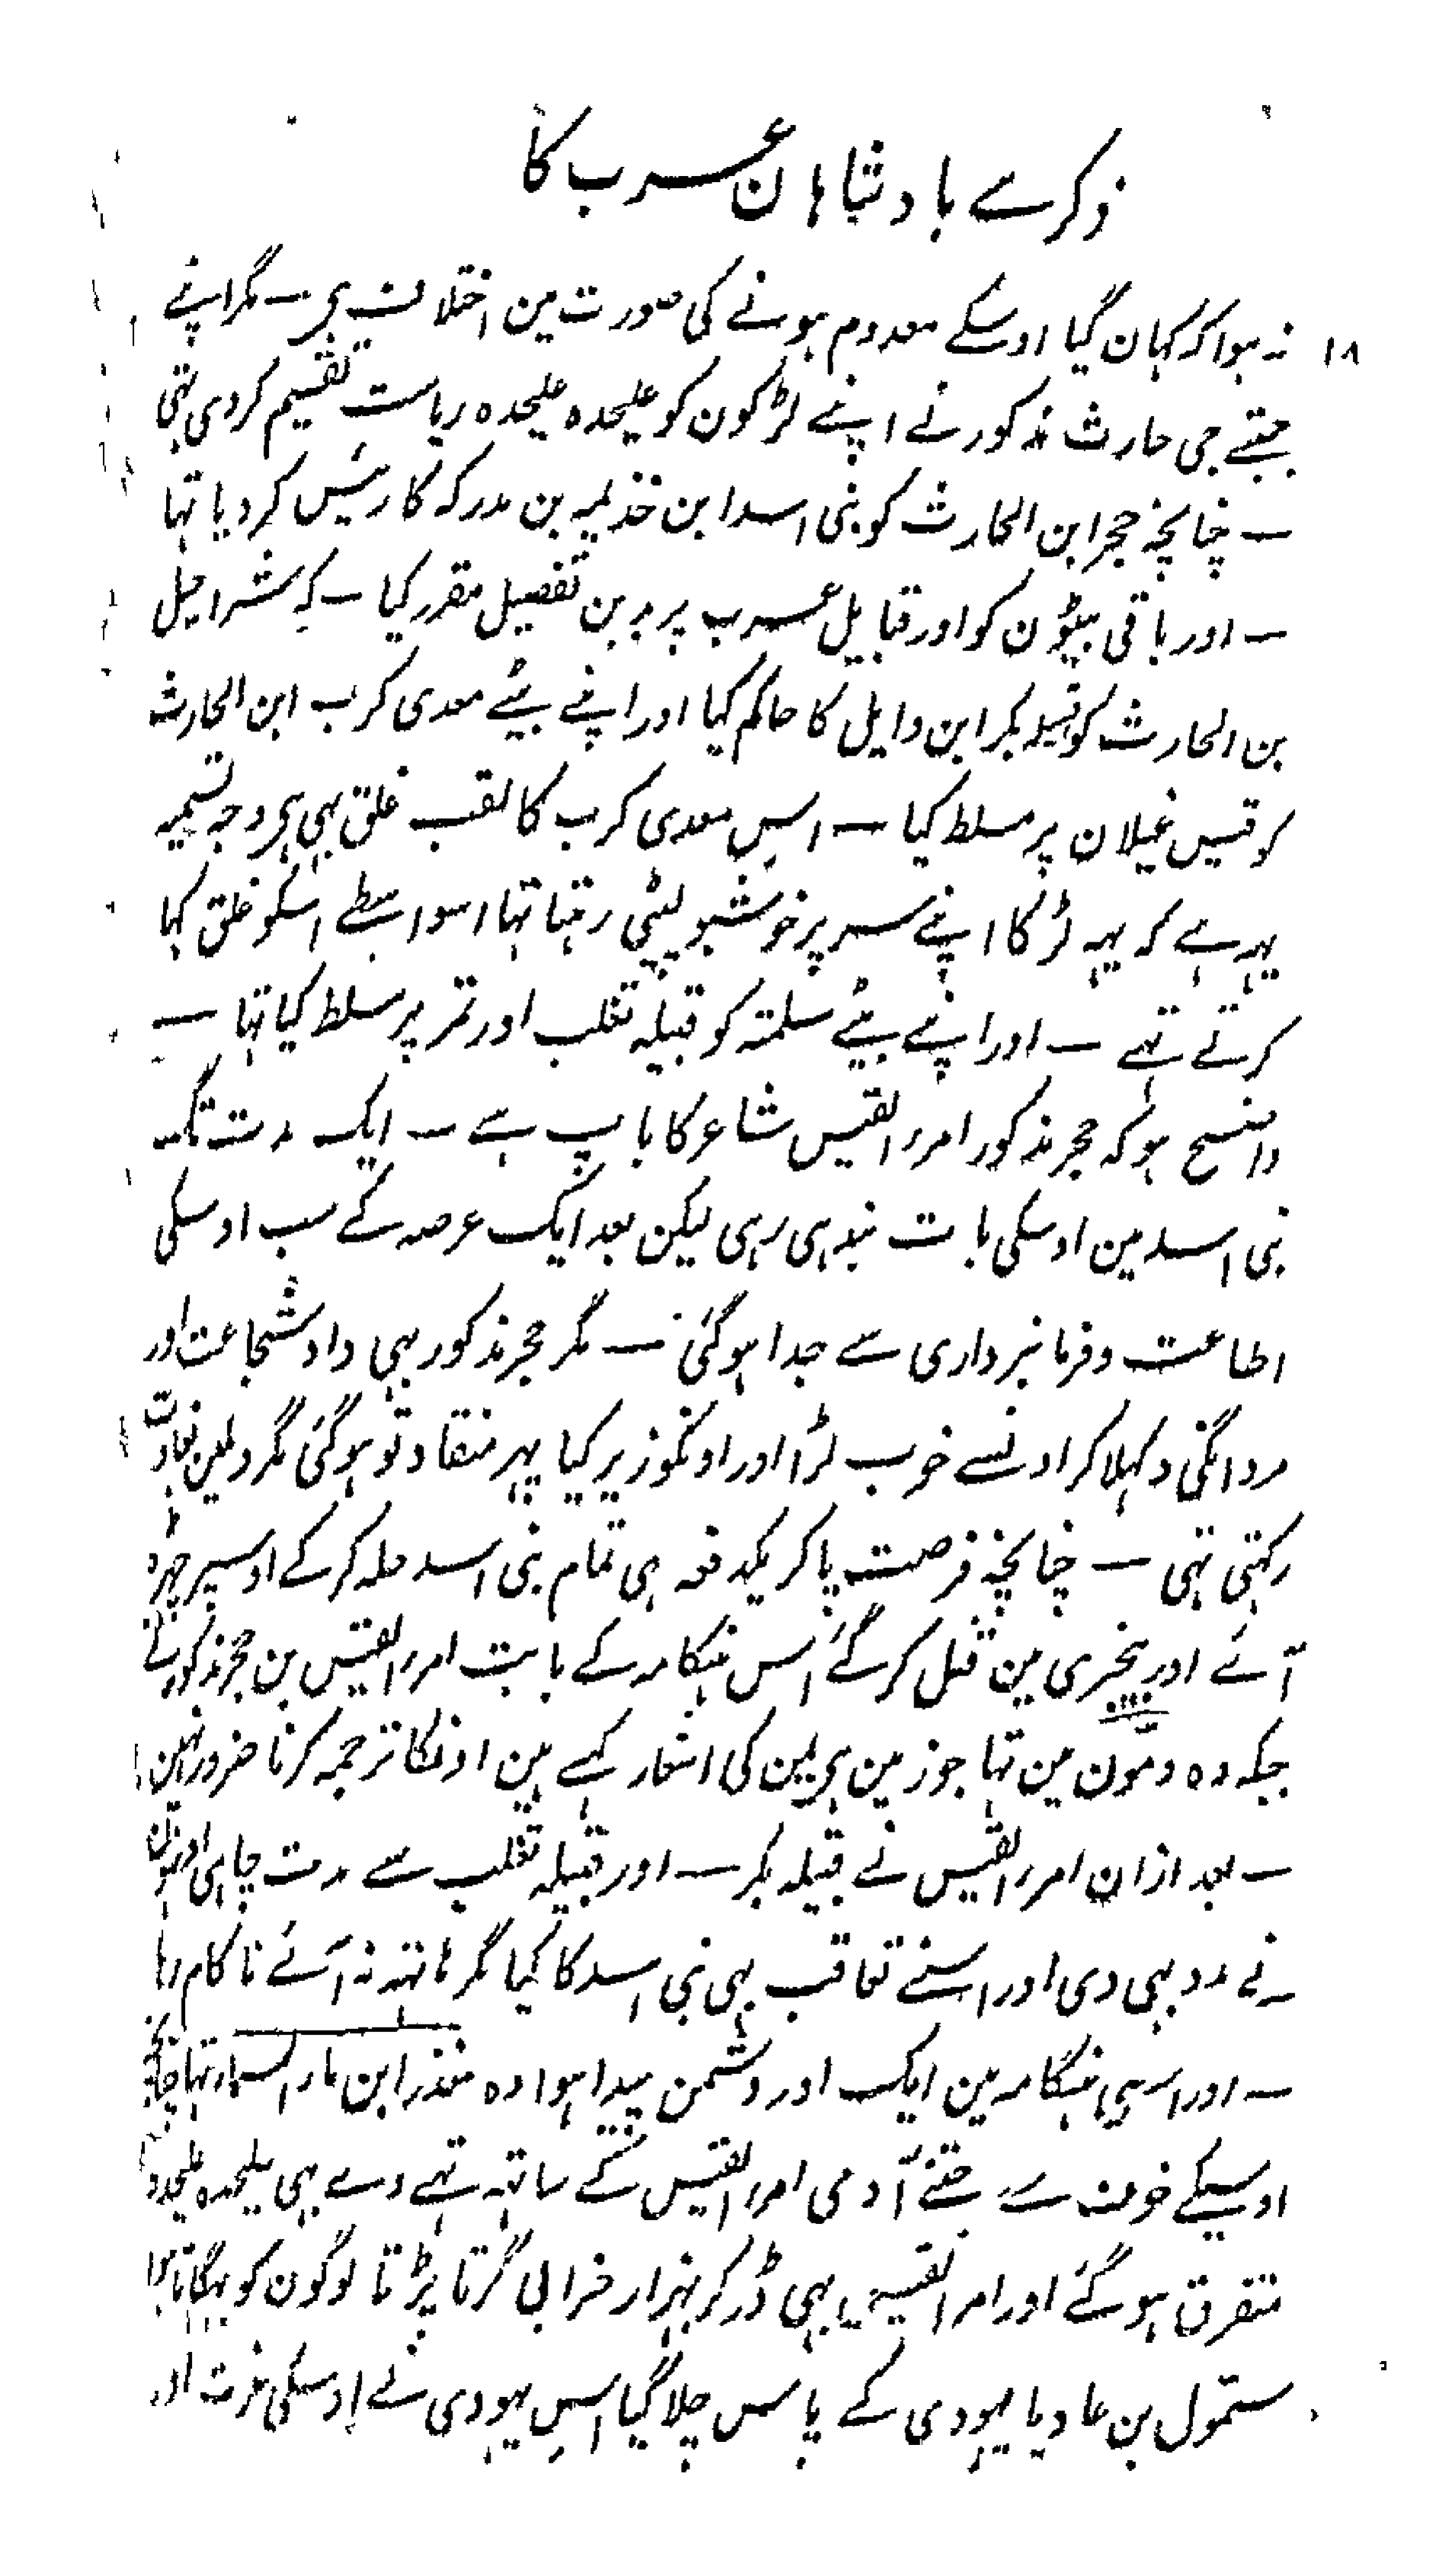 ذکرے بادشاہان عرب کا
۱۸ نہ ہوا کہ کہان گیا اوسکے معدوم ہونے کی صورت مین اختلاف ہی — مگر اپنے
جیتے جی حارث مذکور نے اپنے لڑکون کو علیحدہ علیحدہ ریاست تقسیم کر دی تہی
— چنانچہ حجر ابن الحارث کو بنی اسد ابن خذیمہ بن مدرکہ کا رئیس کر دیا تہا
— اور باقی بیٹون کو اور قبایل عرب پر بدین تفصیل مقرر کیا — کہ شراحیل
بن الحارث کو قبیلہ بکر ابن وایل کا حاکم کیا اور اپنے بیٹے معدی کرب ابن الحارث
کو قیس غیلان پر مسلط کیا — اس معدی کرب کا لقب غلق بہی ہی وجہ تسمیہ
یہہ ہے کہ یہہ لڑکا اپنے سر پر خوشبو لیپی رہتا تہا اسواسطے اسکو غلق کہا
کرتے تہے — اور اپنے بیٹے سلمتہ کو قبیلہ تغلب اور تمر پر مسلط کیا تہا —
واضح ہو کہ حجر مذکور امرء القیس شاعر کا باپ ہے — ایک مدت تک
بنی اسد مین اوسکی بات بندہی رہی لیکن بعد ایک عرصہ کے سب اوسکی
اطاعت و فرمانبرداری سے جدا ہو گئی — مگر حجر مذکور بہی داد شجاعت اور
مردانگی دکہلا کر اونسے خوب لڑا اور اونکو زیر کیا پہر منقاد تو ہو گئی مگر دلمین بغاوت
رکہتی تہی — چنانچہ فرصت پا کر یکدفعہ ہی تمام بنی اسد حملہ کر کے اوسپر چڑہ
آئے اور بیخبری مین قتل کر گئے اس ہنگامہ کے بابت امرء القیس بن حجر مذکور نے
جبکہ وہ دمّون مین تہا جو زمین ہی یمن کی اشعار کہے ہین اونکا ترجمہ کرنا ضرور نہین
— بعد ازان امرء القیس نے قبیلہ بکر — اور قبیلہ تغلب سے مدت چاہی اونہون
نے مدد بہی دی اور اسنے تعاقب بہی بنی اسد کا کیا مگر ہاتہہ نہ آئے ناکام رہا
— اور اسی ہنگامہ مین ایک اور دشمن پیدا ہوا وہ منذر ابن ماء السماء تہا چنانچہ
اوسیکے خوف سے جتنے آدمی امرء القیس کے ساتہہ تہے وے بہی علیحدہ علیحدہ
متفرق ہو گئے اور امرء القیس بہی ڈر کر بہزار خرابی گرتا پڑتا لوگون کو بہگاتا ہوا
سمّول بن عادیا یہودی کے پاس چلا گیا اس یہودی نے اوسکی عزت اور